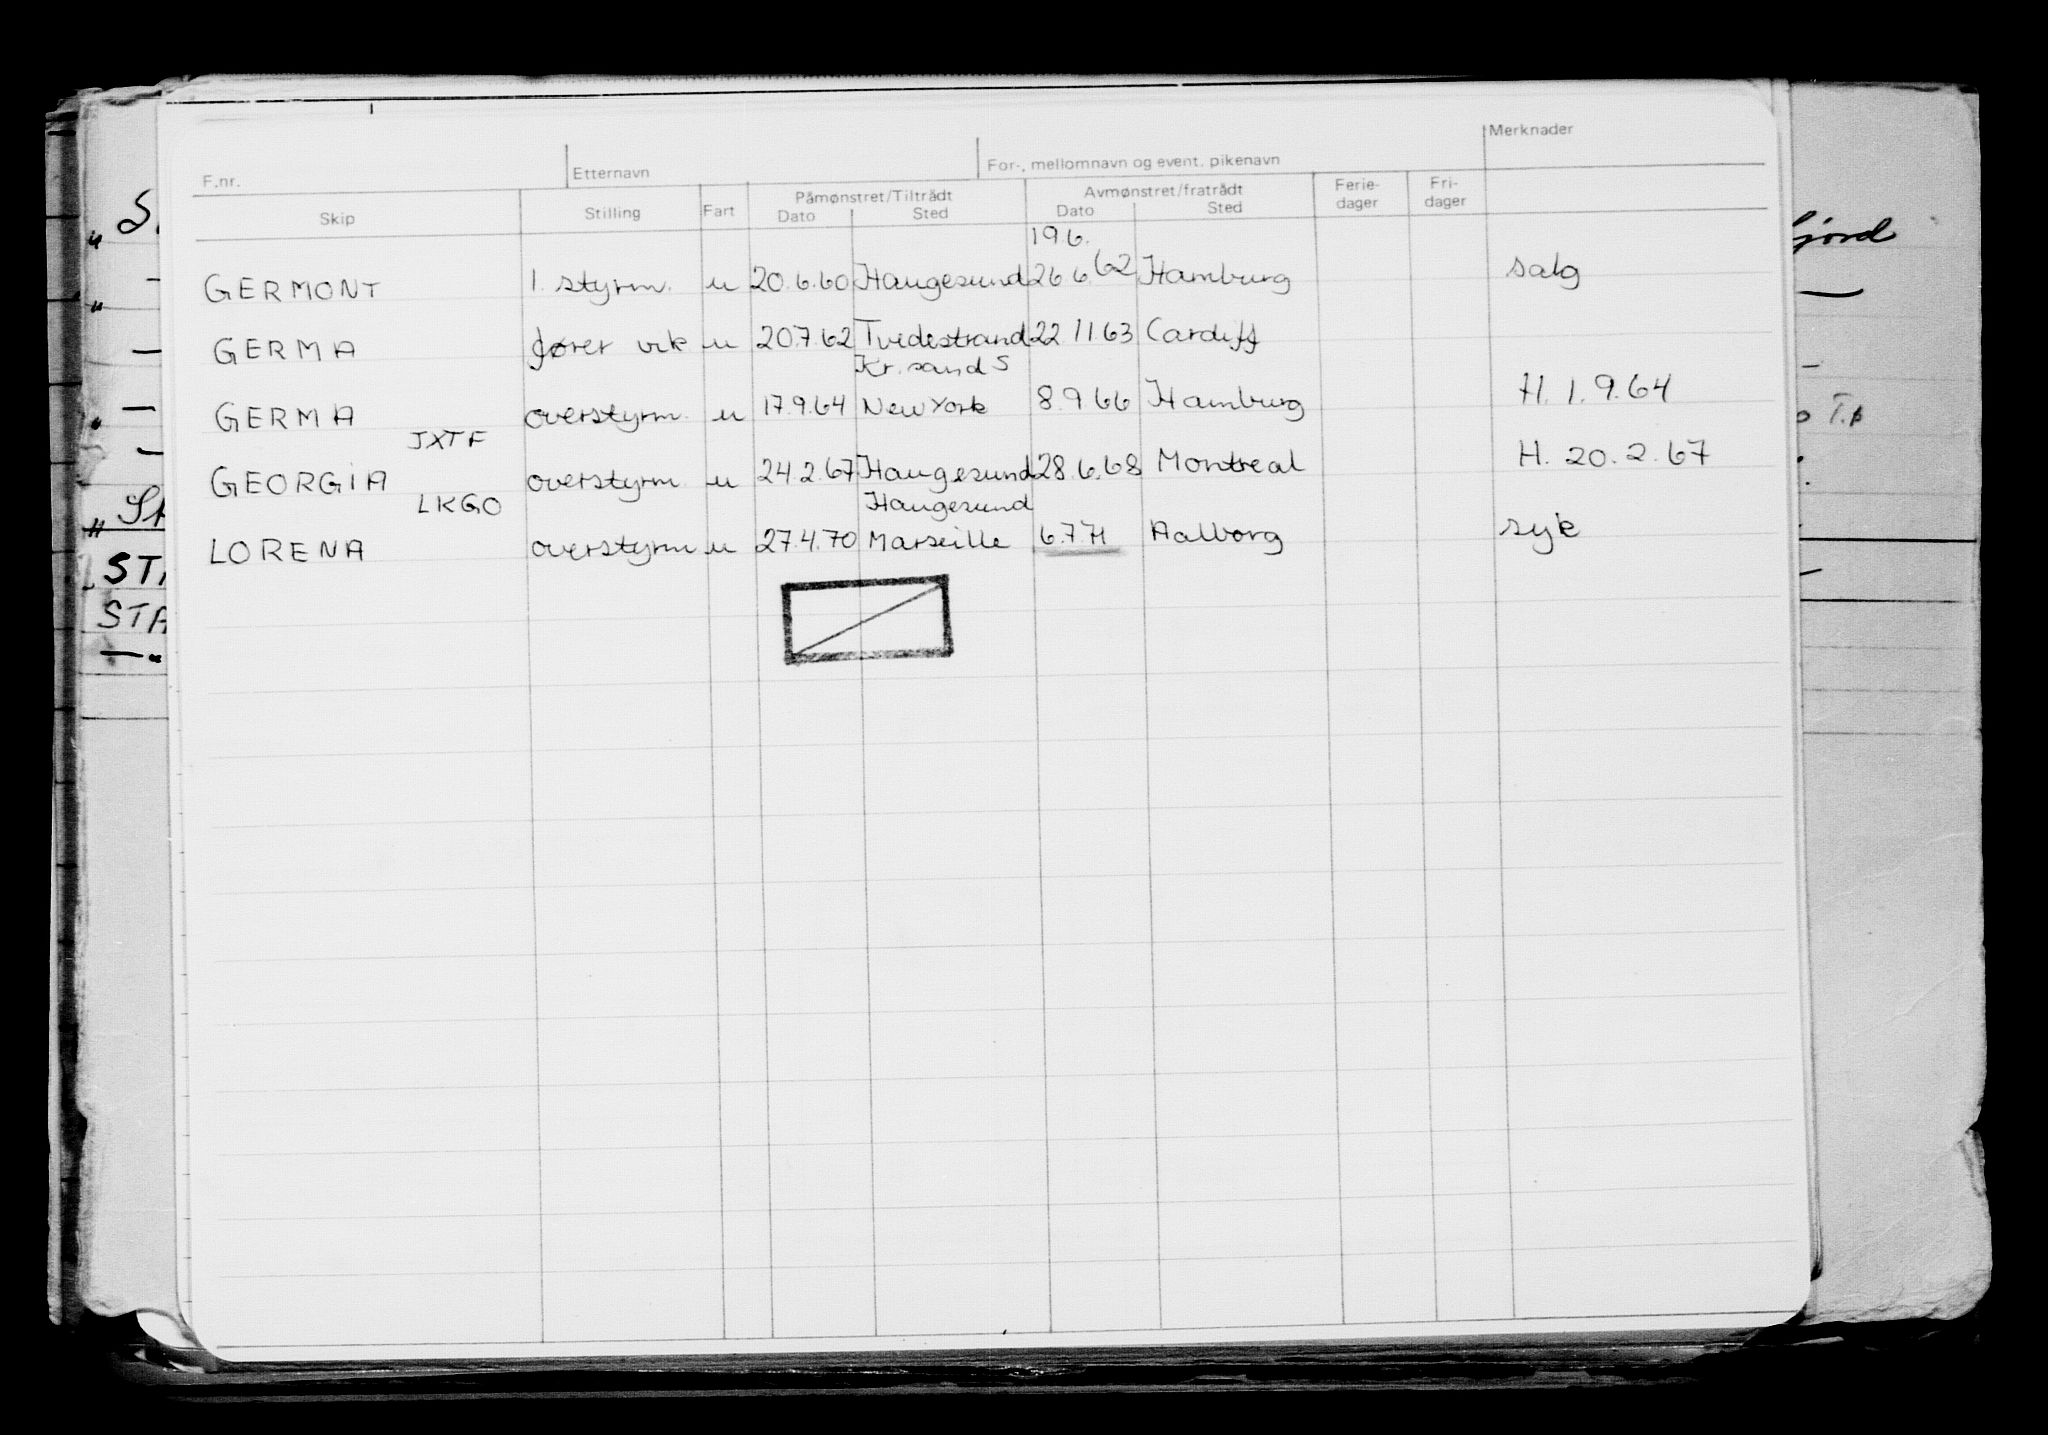 Merknader
F.nr. Etternavn For-, mellomnavn og event. pikenavn
Skip Stilling Fart Påmønstret/Tiltrådt Dato Sted Avmønstret/fratrådt Dato Sted Ferie-dager Fri-dager
19.6.
GERMONT 1. styrm. u 20.6.60 Haugesund 26.6.62 Hamburg salg
GERMA fører vik u 20.7.62 Tvedestrand 22.11.63 Cardiff
Kr.sand S
GERMA overstyrm. u 17.9.64 New York 8.9.66 Hamburg H. 1.9.64
JXTF
GEORGIA overstyrm u 24.2.67 Haugesund 28.6.68 Montreal H. 20.2.67
LKGO Haugesund
LORENA overstyrm u 27.4.70 Marseille 6.7.71 Aalborg syk